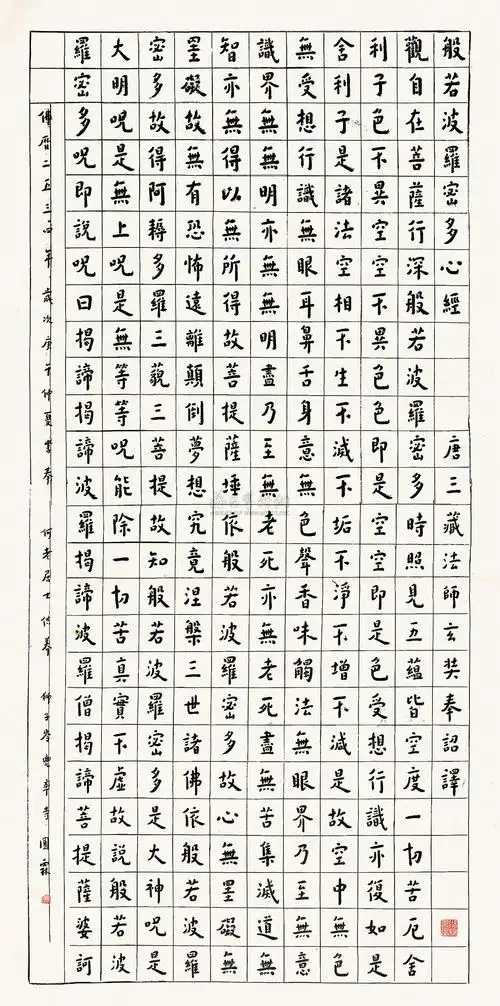 般若波羅密多心經 唐三藏法師玄奘奉詔譯
觀自在菩薩行深般若波羅密多時照見五蘊皆空度一切苦厄舍
利子色不異空空不異色色即是空空即是色受想行識亦復如是
舍利子是諸法空相不生不滅不垢不淨不增不減是故空中無色
無受想行識無眼耳鼻舌身意無色聲香味觸法無眼界乃至無意
識界無無明亦無無明盡乃至無老死亦無老死盡無苦集滅道無
智亦無得以無所得故菩提薩埵依般若波羅密多故心無罣礙無
罣礙故無有恐怖遠離顛倒夢想究竟涅槃三世諸佛依般若波羅
密多故得阿耨多羅三藐三菩提故知般若波羅密多是大神咒是
大明咒是無上咒是無等等咒能除一切苦真實不虛故說般若波
羅密多咒即說咒曰揭諦揭諦波羅揭諦波羅僧揭諦菩提薩婆訶
佛曆二五三四年歲次庚午仲夏書奉 何老居士供養 獅子岑兜率寺圓霖